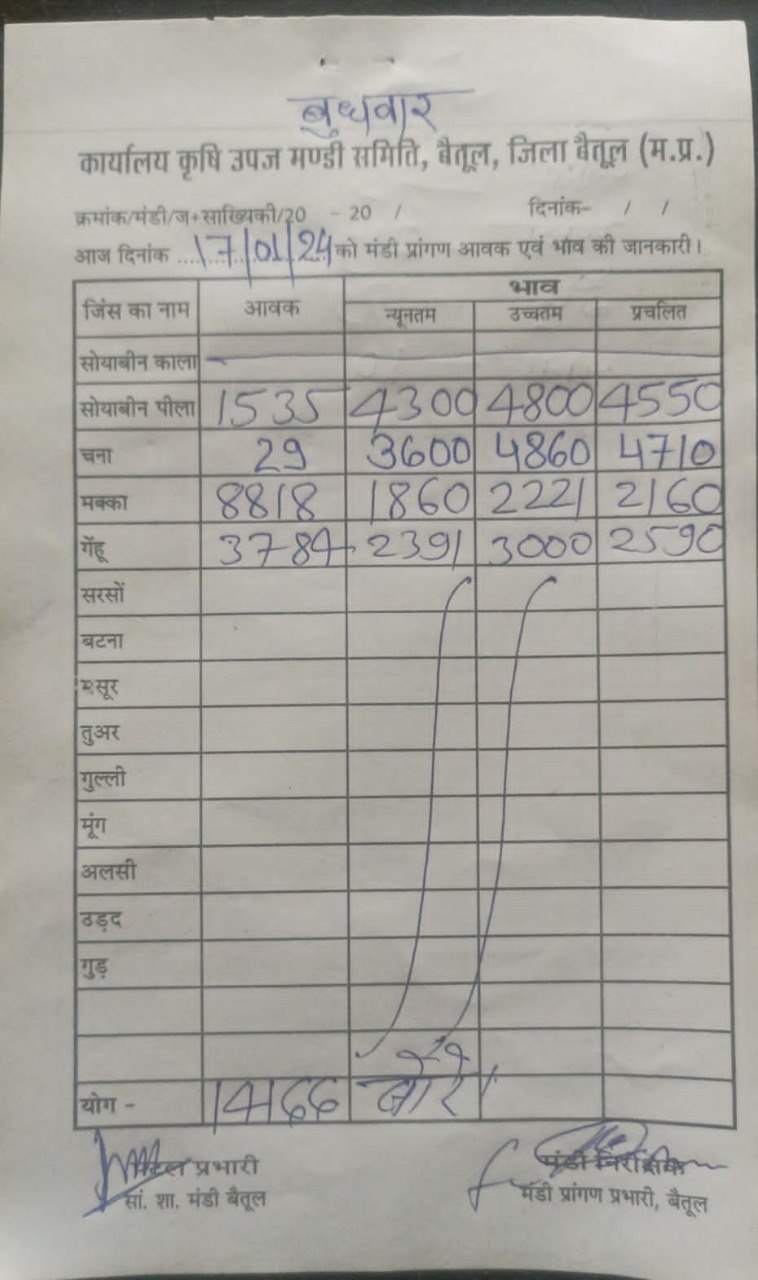 बुधवार
कार्यालय कृषि उपज मण्डी समिति, बैतूल, जिला बैतूल (म.प्र.)
क्रमांक/मंडी/ज+सांख्यिकी/20 - 20 / दिनांक- / /
आज दिनांक ....17/01/24 को मंडी प्रांगण आवक एवं भाव की जानकारी।
जिंस का नाम आवक भाव
न्यूनतम उच्चतम प्रचलित
सोयाबीन काला -
सोयाबीन पीला 1535 4300 4800 4550
चना 29 3600 4860 4710
मक्का 8818 1860 2221 2160
गेंहू 3784 2391 3000 2590
सरसों
बटना
मसूर
तुअर
गुल्ली
मूंग
अलसी
उड़द
गुड़
योग - 14166 बोरे
प्रभारी
सां. शा. मंडी बैतूल
मंडी निरीक्षक
मंडी प्रांगण प्रभारी, बैतूल